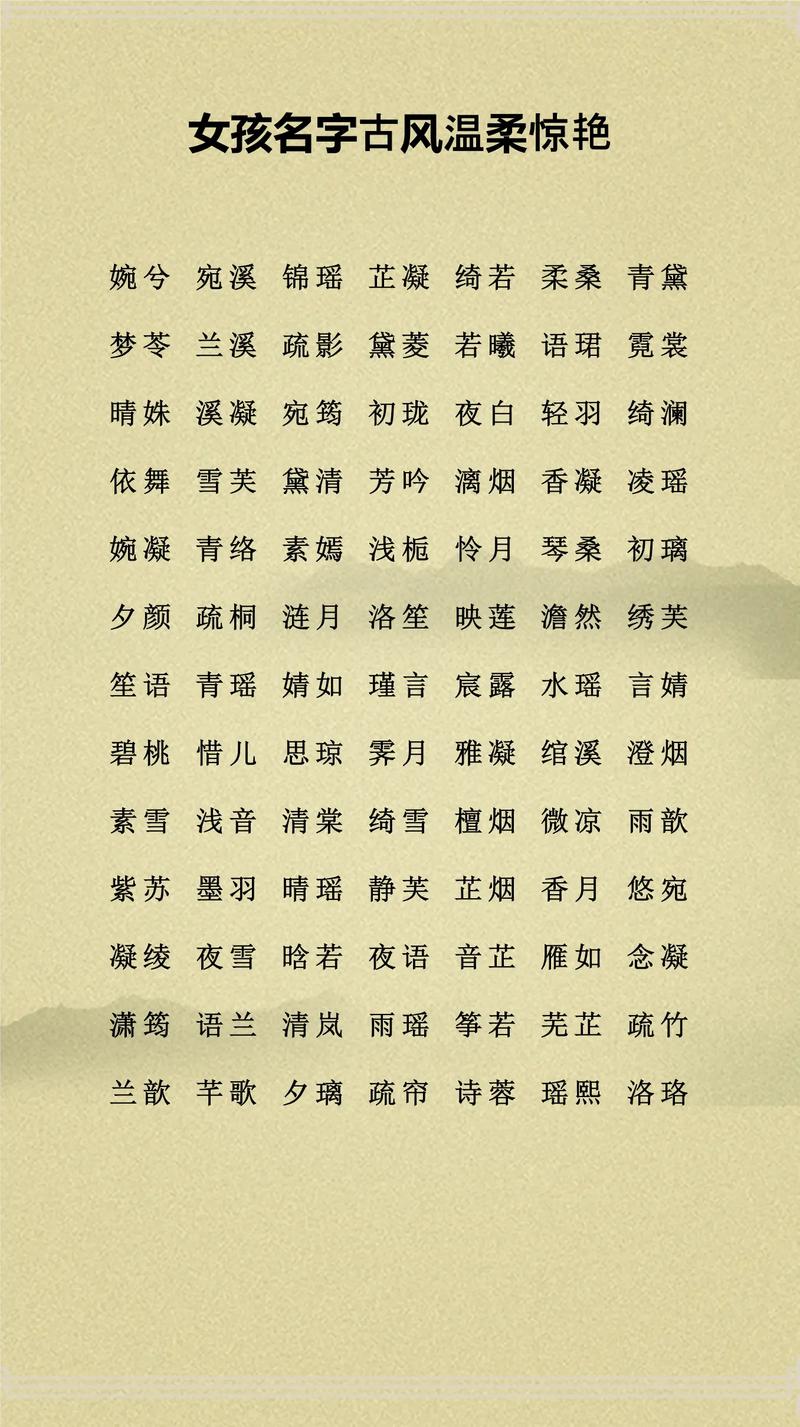 女孩名字古风温柔惊艳
婉兮 宛溪 锦瑶 芷凝 绮若 柔桑 青黛
梦苓 兰溪 疏影 黛菱 若曦 语珺 霓裳
晴姝 溪凝 宛筠 初珑 夜白 轻羽 绮澜
依舞 雪芙 黛清 芳吟 漓烟 香凝 凌瑶
婉凝 青络 素嫣 浅栀 怜月 琴桑 初璃
夕颜 疏桐 涟月 洛笙 映莲 澹然 绣芙
笙语 青瑶 婧如 瑾言 宸露 水瑶 言婧
碧桃 惜儿 思琼 霁月 雅凝 绾溪 澄烟
素雪 浅音 清棠 绮雪 檀烟 微凉 雨歆
紫苏 墨羽 晴瑶 静芙 芷烟 香月 悠宛
凝绫 夜雪 晗若 夜语 音芷 雁如 念凝
潇筠 语兰 清岚 雨瑶 筝若 芜芷 疏竹
兰歆 芊歌 夕璃 疏帘 诗蓉 瑶熙 洛珞